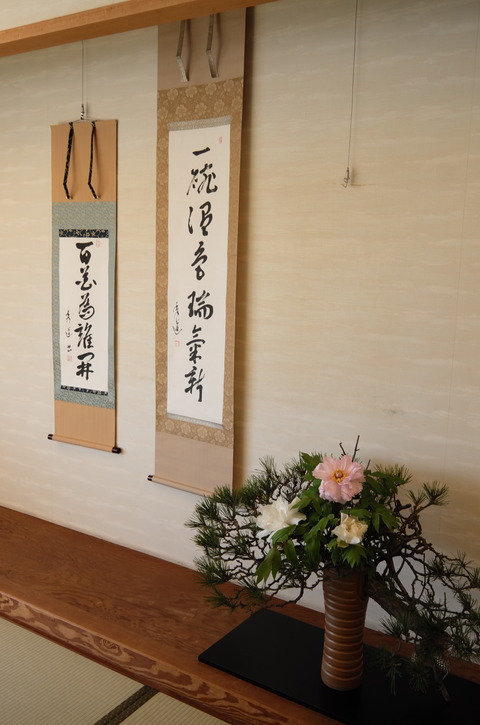 一碗温香瑞氣新
百花為誰開